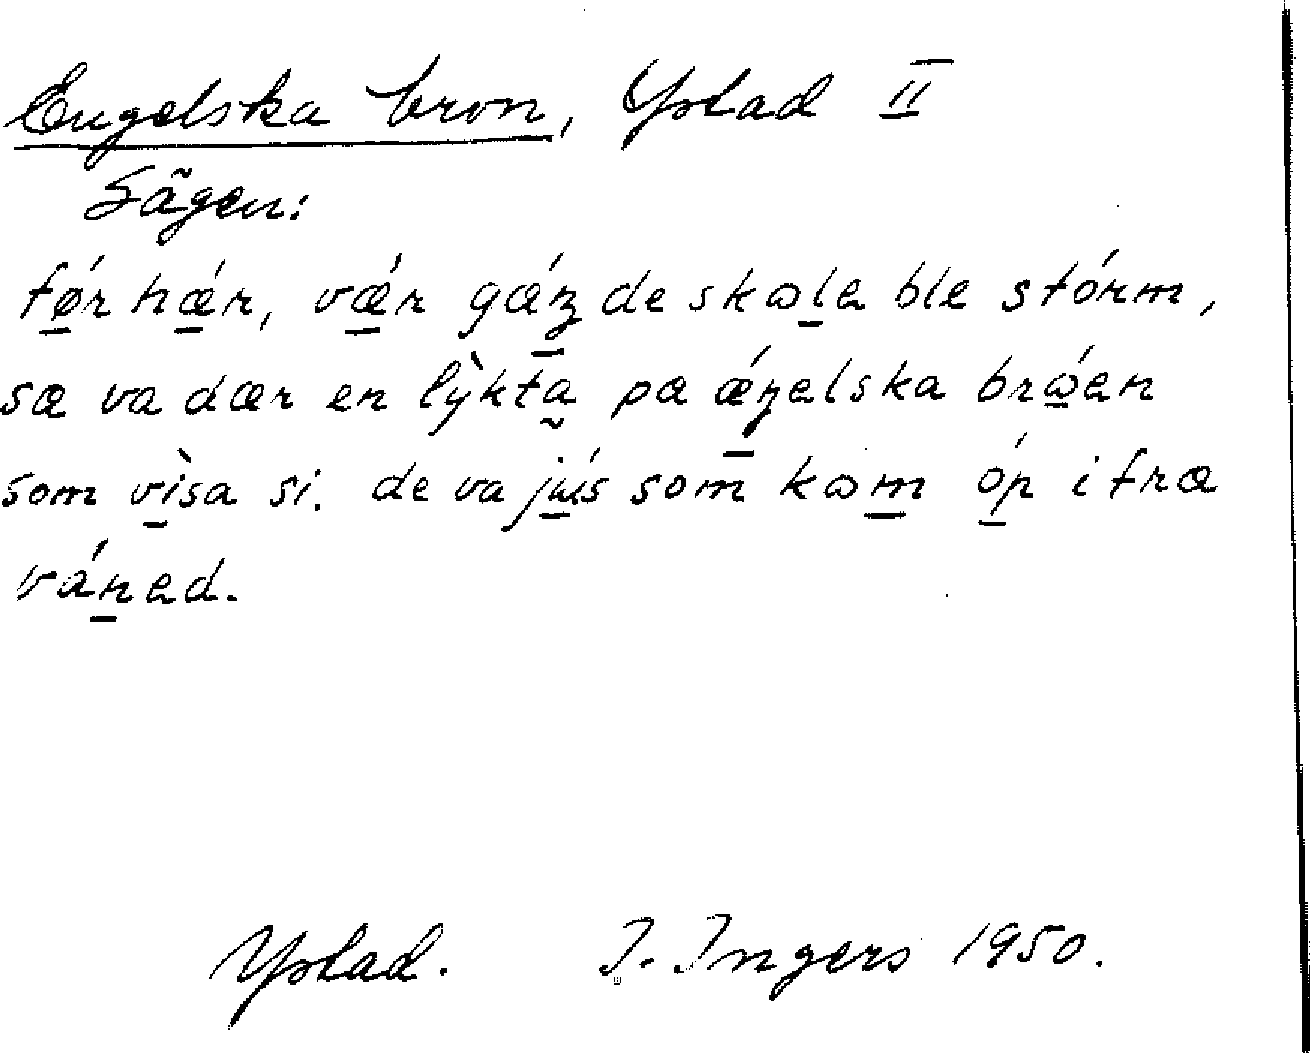 Engelska bron, Ystad II
Sägen:
fǿ̱r hǽ̱r, vǽ̱r gáŋ̱ de skɷḻe ble stórm,
sɑ va dær en lỳ̱kta̰ pɑ ǽŋ̱elska brɷ̱́en
som vì̱sa si. de va jʉ̱́s som kɷm̱ óp̱ i frɑ
váṉed.
Ystad. I. Ingers 1950.